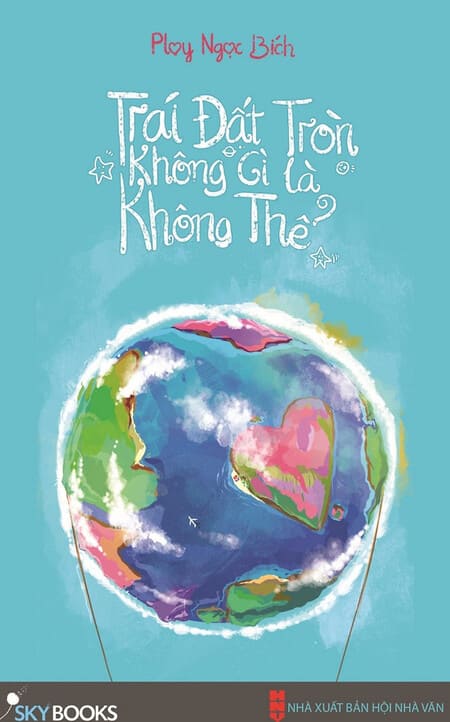 Ploy Ngọc Bích
Trái Đất Tròn
Không Gì Là
Không Thể
SKYBOOKS
NHÀ XUẤT BẢN HỘI NHÀ VĂN